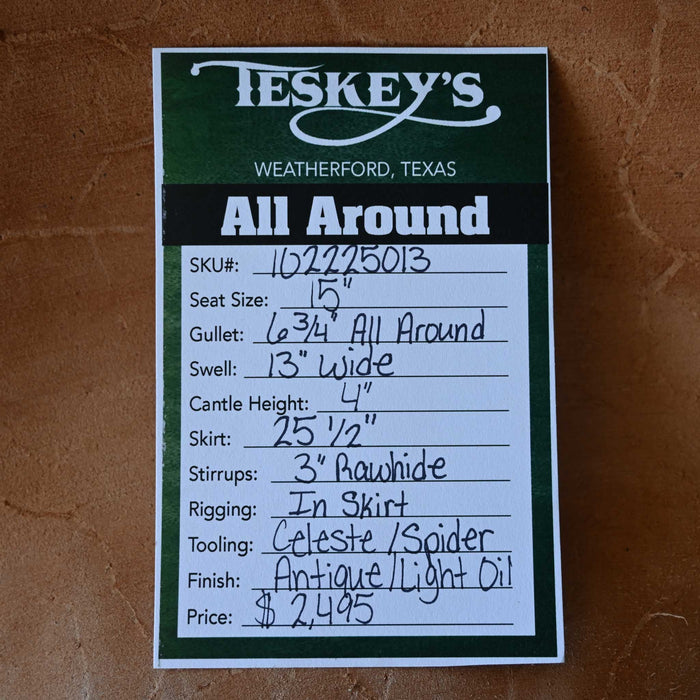 TESKEY'S
WEATHERFORD, TEXAS
All Around
SKU#: 102225013
Seat Size: 15"
Gullet: 6 3/4" All Around
Swell: 13" Wide
Cantle Height: 4"
Skirt: 25 1/2"
Stirrups: 3" Rawhide
Rigging: In Skirt
Tooling: Celeste/Spider
Finish: Antique/Light Oil
Price: $2,495